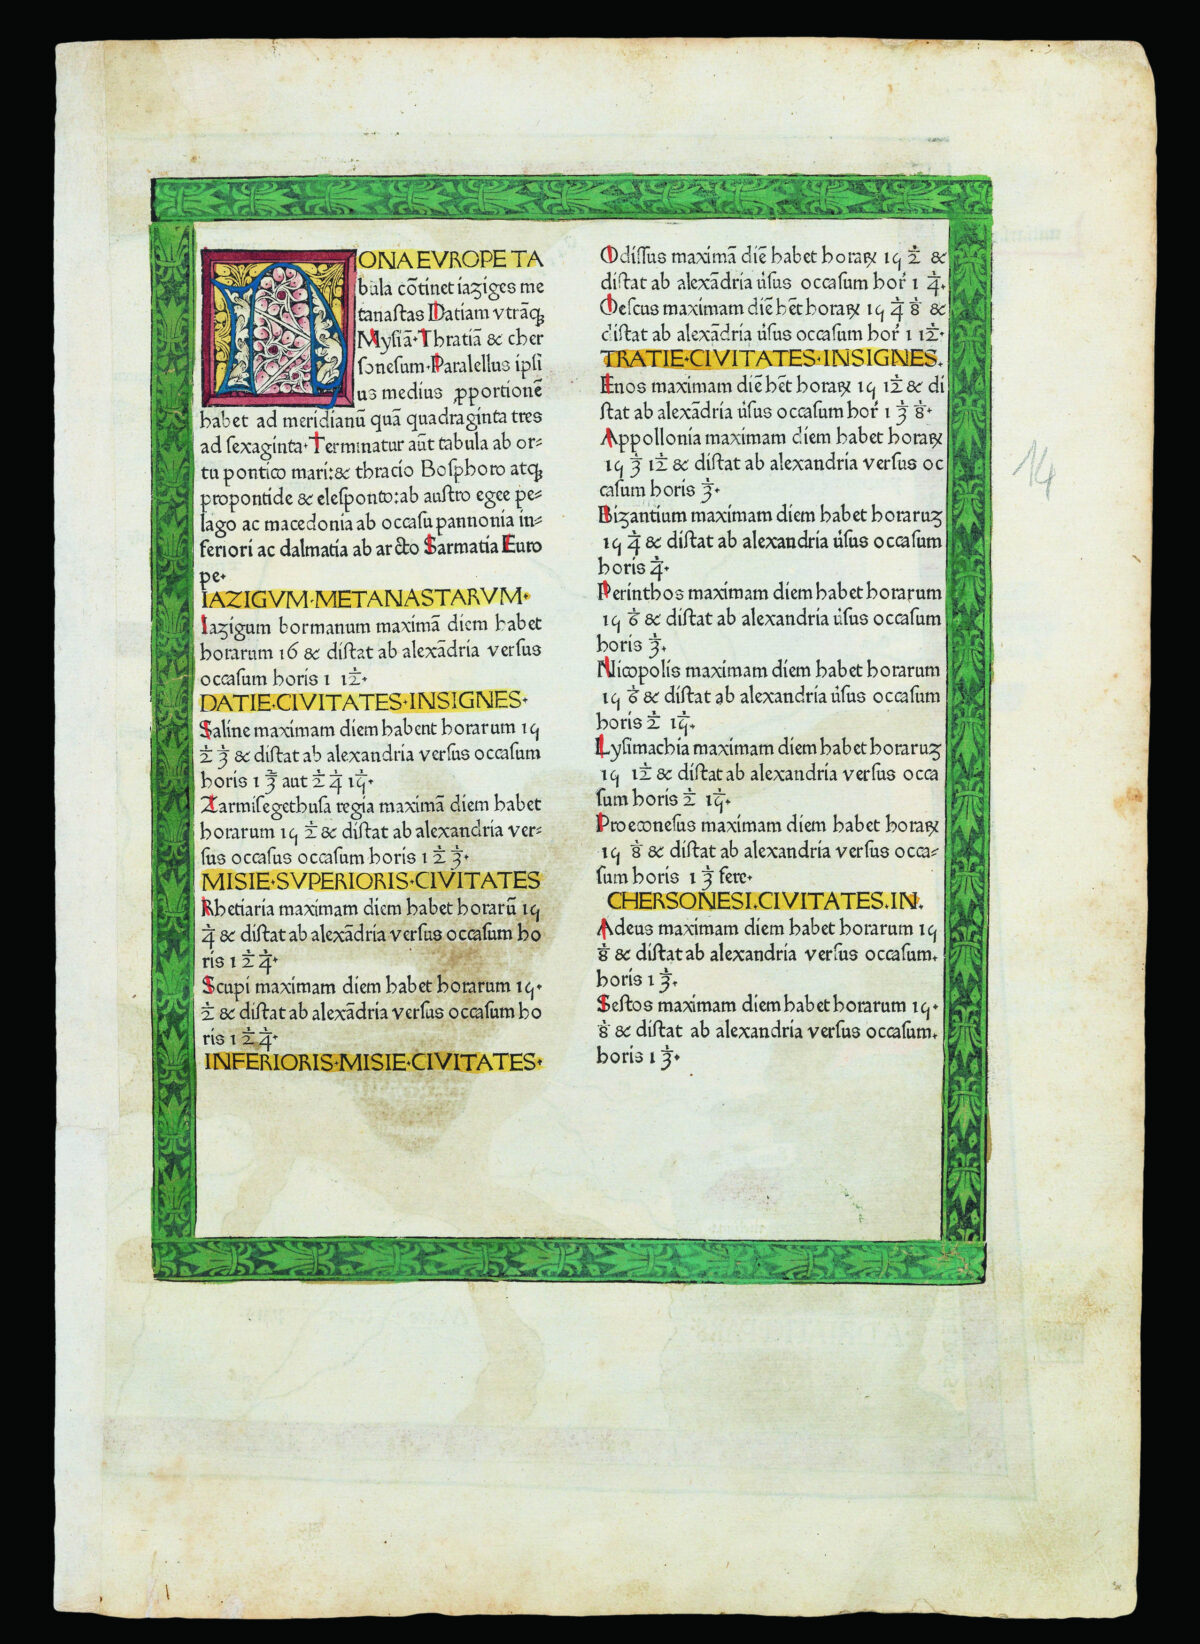 NONA EVROPE TA
bula cõtinet iaziges me
tanastas Datiam vtrãqꝫ
Mysiã·Thratiã & cher
sonesum·Paralellus ipsi
us medius ꝓportionẽ
habet ad meridianũ quã quadraginta tres
ad sexaginta·Terminatur aũt tabula ab or-
tu pontico mari:& thracio Bosphoro atqꝫ
propontide & elesponto:ab austro egee pe-
lago ac macedonia ab occasu pannonia in-
feriori ac dalmatia ab arcto Sarmatia Euro
pe·
IAZIGVM·METANASTARVM·
Iazigum bormanum maximã diem habet
horarum 16 & distat ab alexãdria versus
occasum horis 1 1/12·
DATIE·CIVITATES·INSIGNES·
Saline maximam diem habent horarum 15
1/2 1/3 & distat ab alexandria versus occasum
horis 1 2/3 aut 1/2 1/4 1/15·
Zarmisegethusa regia maximã diem habet
horarum 15 1/2 & distat ab alexandria ver-
sus occasus occasum horis 1 1/2 1/3·
MISIE·SVPERIORIS·CIVITATES
Rhetiaria maximam diem habet horarũ 15
1/4 & distat ab alexãdria versus occasum ho
ris 1 1/2 1/4·
Scupi maximam diem habet horarum 15·
1/2 & distat ab alexãdria versus occasum ho
ris 1 1/2 1/4·
INFERIORIS·MISIE·CIVITATES·
Odissus maximã diẽ habet horaꝝ 15 1/2 &
distat ab alexãdria u̇sus occasum hor̓ 1 1/4·
Oescus maximam diẽ hẽt horaꝝ 15 1/4 1/8 &
distat ab alexãdria u̇sus occasum hor̓ 1 1/12·
TRATIE·CIVITATES·INSIGNES·
Enos maximam diẽ hẽt horaꝝ 15 1/12 & di
stat ab alexãdria u̇sus occasum hor̓ 1 1/3 1/8·
Appollonia maximam diem habet horaꝝ
15 1/3 1/12 & distat ab alexandria versus oc
casum horis 1/3·
Bizantium maximam diem habet horaruꝫ
15 1/4 & distat ab alexandria u̇sus occasum
horis 1/4·
Perinthos maximam diem habet horarum
15 1/6 & distat ab alexandria u̇sus occasum
horis 1/3·
Nicopolis maximam diem habet horarum
15 1/6 & distat ab alexandria u̇sus occasum
horis 1/2 1/15·
Lysimachia maximam diem habet horaruꝫ
15 1/12 & distat ab alexandria versus occa
sum horis 1/2 1/15·
Proeconesus maximam diem habet horaꝝ
15 1/8 & distat ab alexandria versus occa-
sum horis 1 1/3 fere·
CHERSONESI.CIVITATES.IN.
Adeus maximam diem habet horarum 15
1/8 & distat ab alexandria versus occasum.
horis 1 1/3·
Sestos maximam diem habet horarum 15·
1/8 & distat ab alexandria versus occasum.
horis 1 1/3·
14